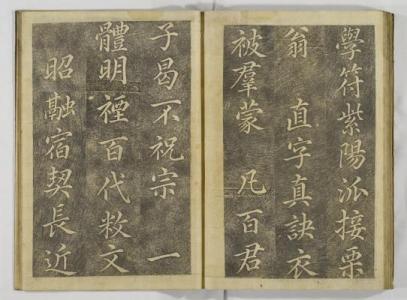 學符紫陽派接栗
翁 直字真訣衣
被羣蒙 凡百君
子曷不祝宗 一
體明禋百代文
昭融宿契長近